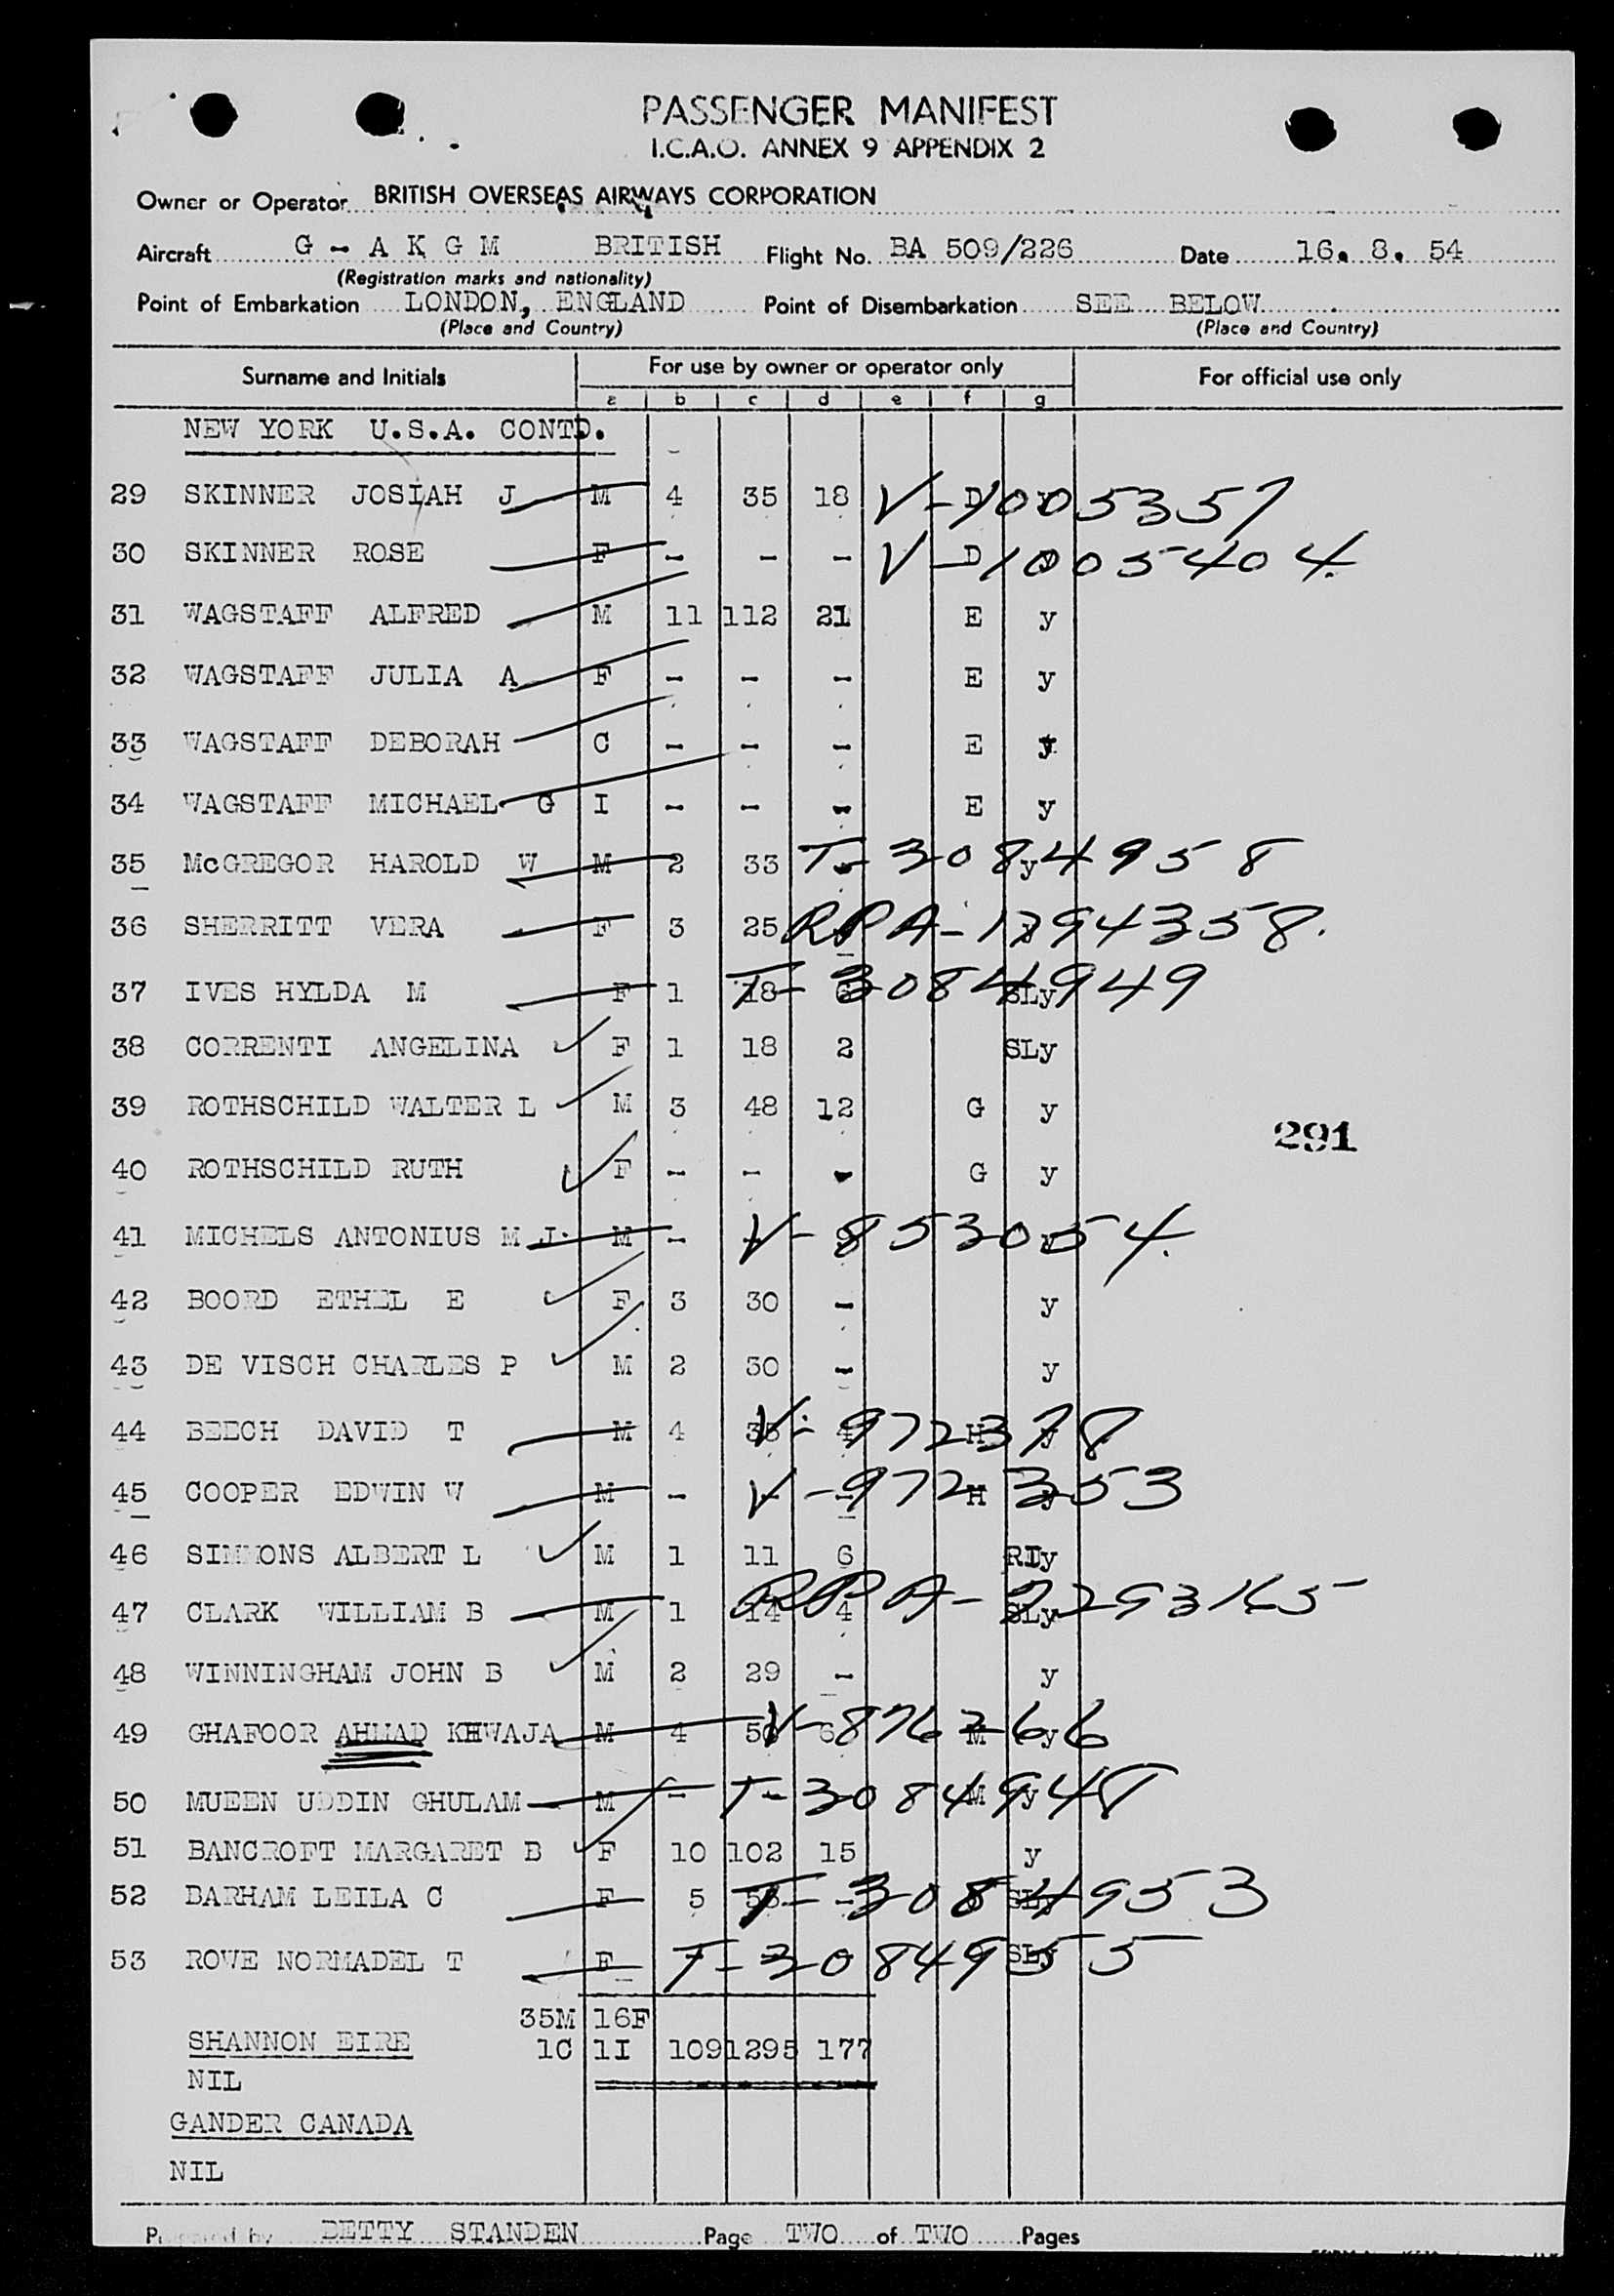 PASSENGER MANIFEST
I.C.A.O. ANNEX 9 APPENDIX 2
Owner or Operator BRITISH OVERSEAS AIRWAYS CORPORATION
Aircraft G - A K G M BRITISH Flight No. BA 509/226 Date 16. 8. 54
(Registration marks and nationality)
Point of Embarkation LONDON, ENGLAND Point of Disembarkation SEE BELOW
(Place and Country) (Place and Country)
Surname and Initials For use by owner or operator only For official use only
a b c d e f g
NEW YORK U.S.A. CONTD.
29 SKINNER JOSIAH J M 4 35 18 D V-1005357
30 SKINNER ROSE F - - - D V-1005404
31 WAGSTAFF ALFRED M 11 112 21 E y
32 WAGSTAFF JULIA A F - - - E y
33 WAGSTAFF DEBORAH C - - - E y
34 WAGSTAFF MICHAEL G I - - - E y
35 McGREGOR HAROLD W M 2 33 - y T-3084958
36 SHERRITT VERA F 3 25 RPA-1794358.
37 IVES HYLDA M F 1 18 6 SLy T-3084949
38 CORRENTI ANGELINA F 1 18 2 SLy
39 ROTHSCHILD WALTER L M 3 48 12 G y
40 ROTHSCHILD RUTH F - - - G y
291
41 MICHELS ANTONIUS M J. M - - V-853054.
42 BOORD ETHEL E F 3 30 - y
43 DE VISCH CHARLES P M 2 30 - y
44 BEECH DAVID T M 4 4 H y V-972378
45 COOPER EDWIN W M - - - H y V-972353
46 SIMMONS ALBERT L M 1 11 6 RDy
47 CLARK WILLIAM B M 1 14 4 SLy RPA-2293165
48 WINNINGHAM JOHN B M 2 29 - y
49 GHAFOOR AHMAD KHWAJA M 4 6 M y V-876266
50 MUEEN UDDIN GHULAM M - M y T-3084948
51 BANCROFT MARGARET B F 10 102 15 y
52 BARHAM LEILA C F 5 - SLy T-3084953
53 ROWE NORMADEL T F SLy T-3084955
35M 16F
SHANNON EIRE 1C 1I 109 1295 177
NIL
GANDER CANADA
NIL
Prepared by BETTY STANDEN Page TWO of TWO Pages